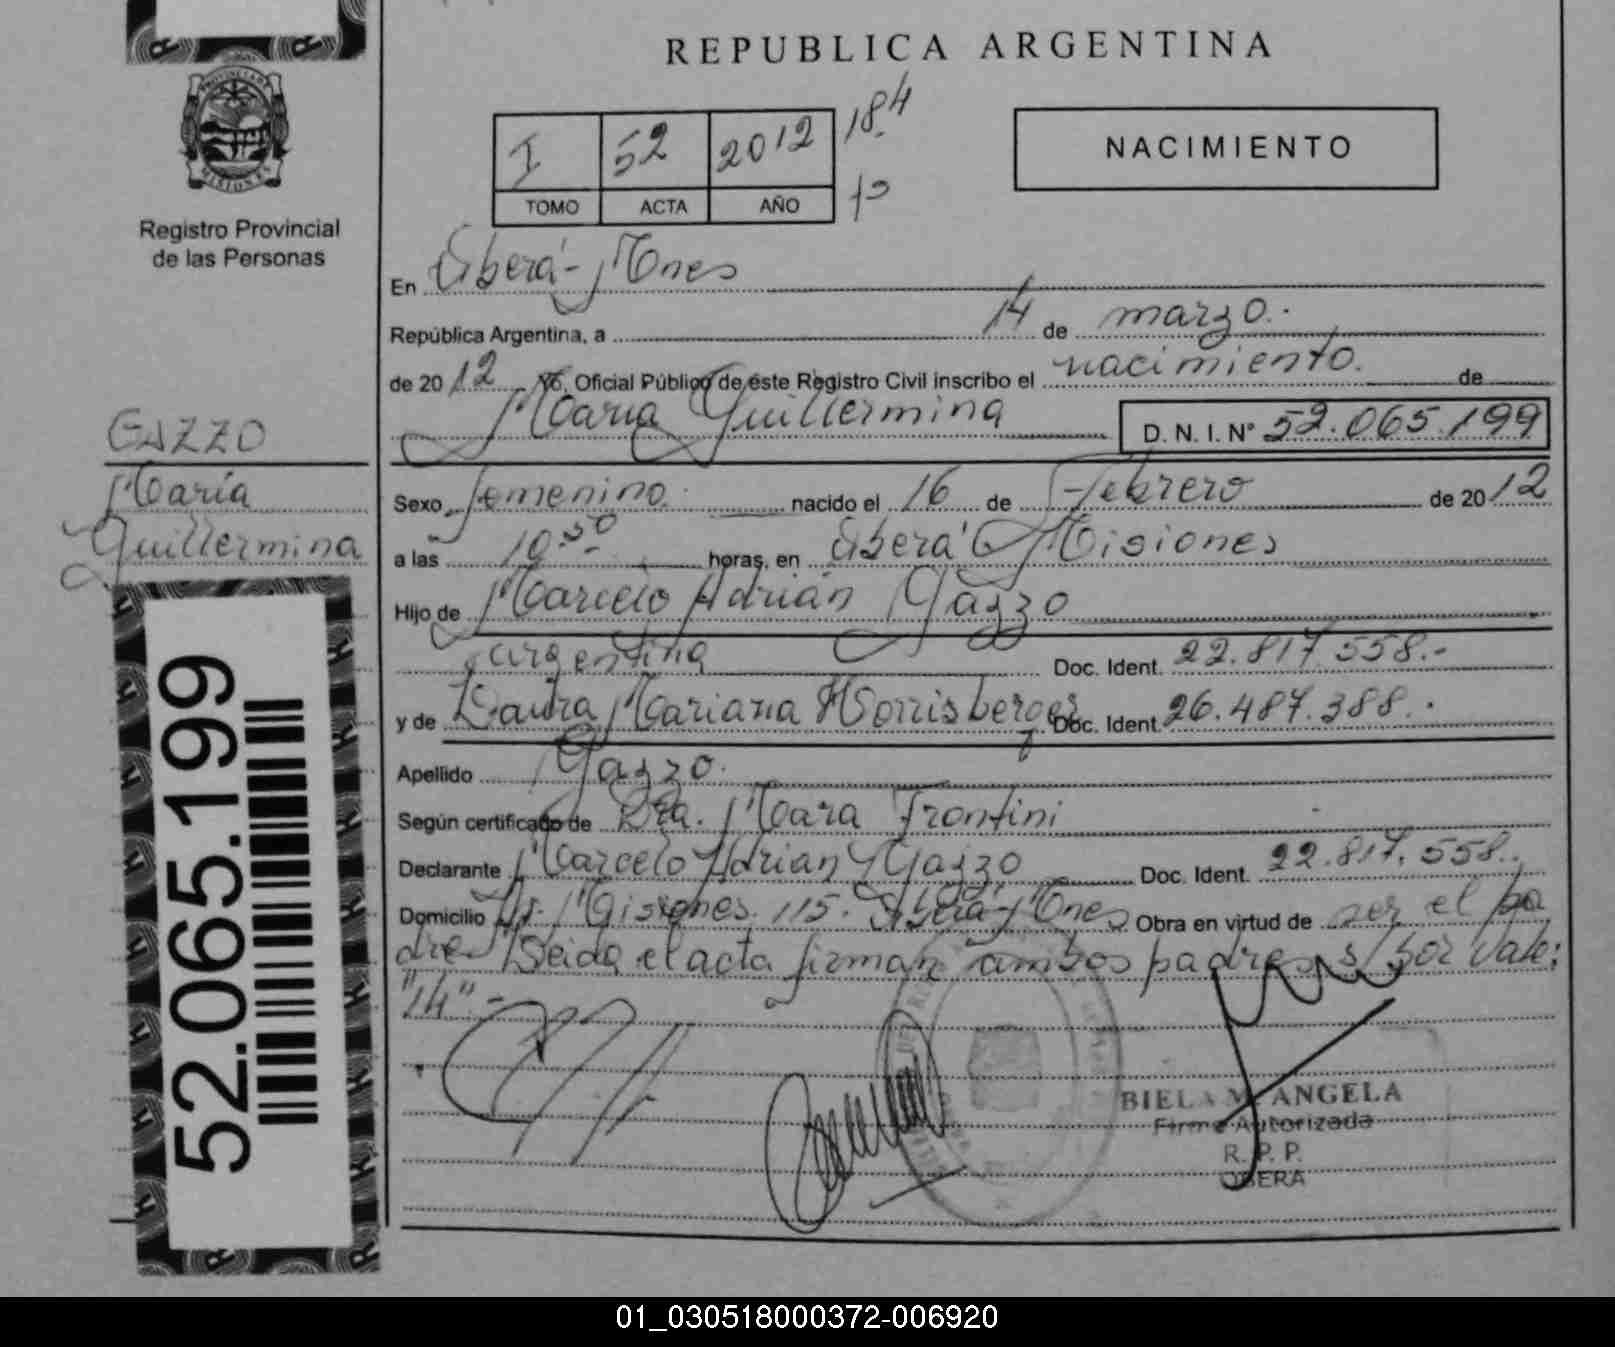 REPUBLICA ARGENTINA
PROVINCIA DE
MISIONES
Registro Provincial
de las Personas
I 52 2012 184
TOMO ACTA AÑO 1º
NACIMIENTO
En Oberá - Mnes
República Argentina, a 14 de marzo.
de 2012 Yo, Oficial Público de este Registro Civil inscribo el nacimiento. de
María Guillermina D. N. I. N° 52.065.199
GAZZO
María
Guillermina
Sexo femenino. nacido el 16 de Febrero de 2012
a las 10.50 horas, en Oberá Misiones
Hijo de Marcelo Adrián Gazzo
argentina Doc. Ident. 22.817.558.-
y de Laura Mariana Morrisberger Doc. Ident. 26.487.388.
Apellido Gazzo.
Según certificado de Dra. Mara Frontini
Declarante Marcelo Adrian Gazzo Doc. Ident. 22.817.558.
Domicilio Misiones 115. Oberá - Mnes Obra en virtud de ser el pa
dre. Leida el acta firman ambos padres s/bor Vale:
"14" -
BIELA M. ANGELA
Firma Autorizada
R. P. P.
OBERA
52.065.199
01_030518000372-006920